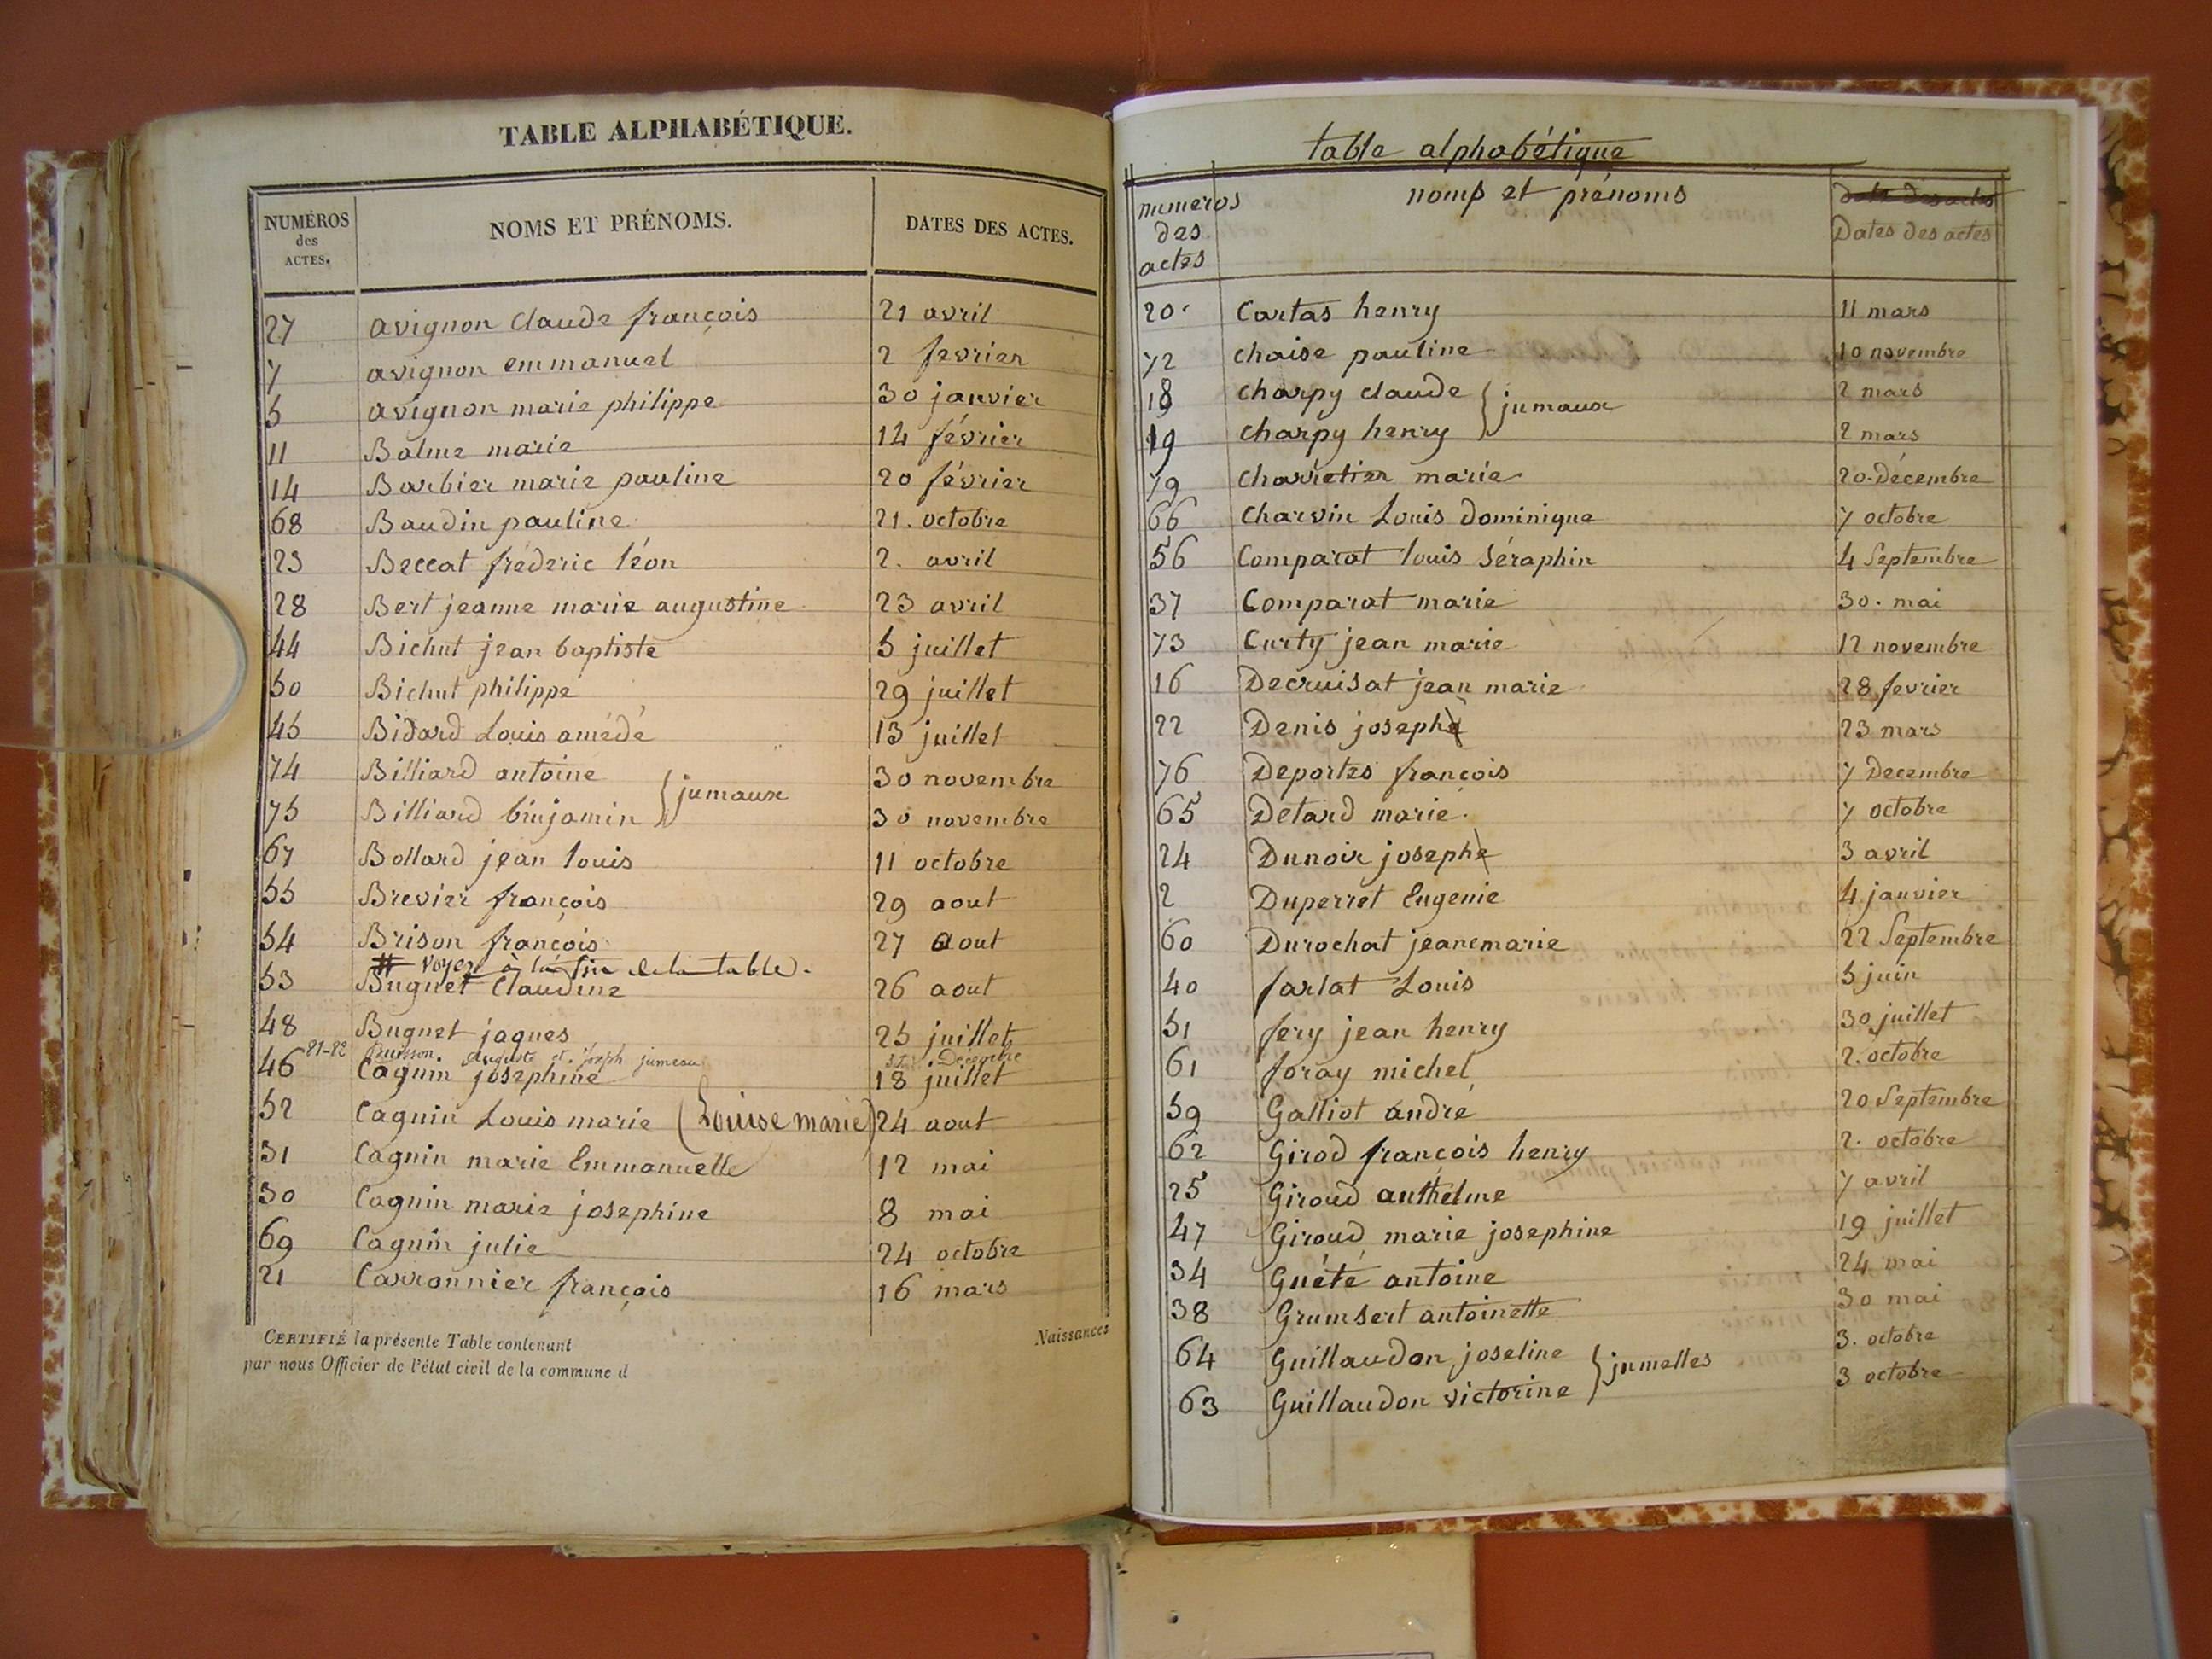 TABLE ALPHABÉTIQUE.
NUMÉROS des ACTES. NOMS ET PRÉNOMS. DATES DES ACTES.
27 avignon claude françois 21 avril
7 avignon emmanuel 2 fevrier
5 avignon marie philippe 30 janvier
11 Balme marie 14 février
14 Barbier marie pauline 20 février
68 Baudin pauline 21. octobre
23 Beccat fréderic léon 2. avril
28 Bert jeanne marie augustine 23 avril
44 Bichut jean baptiste 5 juillet
50 Bichut philippe 29 juillet
45 Bidard Louis amédé 13 juillet
74 Billiard antoine 30 novembre
jumaux
75 Billiard binjamin 30 novembre
67 Bollard jean louis 11 octobre
55 Brevier françois 29 aout
54 Brison françois 27 aout
# voyez à la fin de la table.
53 Buguet Claudine 26 aout
48 Buguet jaques 25 juillet
81-82 Buisson. Auguste et. Joseph jumeau Decembre
46 Cagnin josephine 18 juillet
52 Cagnin Louis marie (Louise marie) 24 aout
31 Cagnin marie Emmanuelle 12 mai
30 Cagnin marie josephine 8 mai
69 Cagnin julie 24 octobre
21 Carronnier françois 16 mars
CERTIFIÉ la présente Table contenant Naissances
par nous Officier de l'état civil de la commune d
table alphabétique
numeros des actes noms et prénoms date des actes
Dates des actes
20. Cartas henry 11 mars
72 chaise pauline 10 novembre
18 charpy claude 2 mars
jumaux
19 charpy henry 2 mars
79 charretier marie 20. décembre
66 charvin Louis dominique 7 octobre
56 Comparat louis Séraphin 4 Septembre
37 Comparat marie 30. mai
73 Curty jean marie 12 novembre
16 Decruisat jean marie 28 fevrier
22 Denis josephe 23 mars
76 Deportes françois 7 Decembre
65 Détard marie. 7 octobre
24 Dunoir josephe 3 avril
2 Duperret Eugenie 4 janvier
60 Durochat jeanemarie 22 Septembre
40 farlat Louis 5 juin
51 fery jean henry 30 juillet
61 foray michel 2. octobre
59 Galliot andré 20 Septembre
62 Girod françois henry 2. octobre
25 Giroud anthelme 7 avril
47 Giroud marie josephine 19 juillet
34 Guété antoine 24 mai
38 Grumsert antoinette 30 mai
64 Guillaudon joseline 3. octobre
jumelles
63 Guillaudon victorine 3 octobre